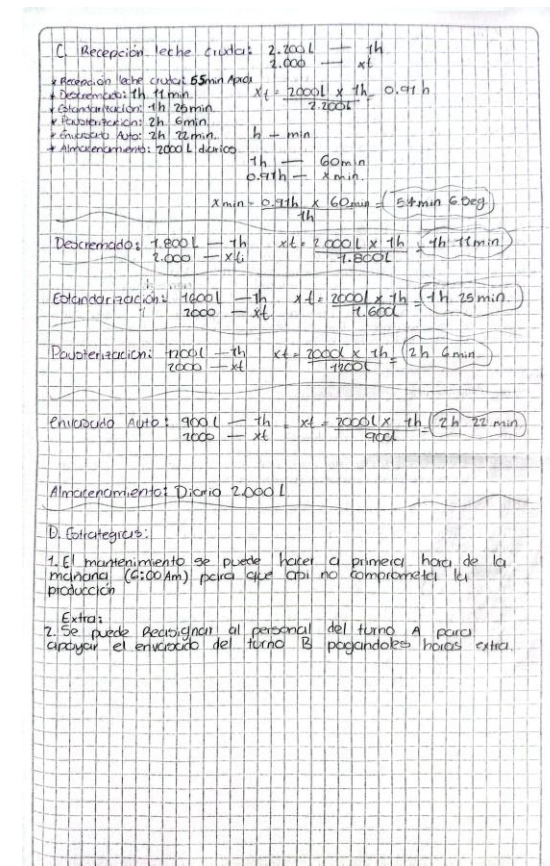 C. Recepción leche cruda: 2.200 L — 1h
2.000 — xt
* Recepcion leche cruda: 55min Aprox
* Descremado: 1h 11 min.
xt = 2000 L x 1h = 0.91 h
2.200L
* Estandarización: 1h 25min
* Pausterización: 2h 6min.
* Envasado Auto: 2h 22min.
h - min
* Almacenamiento: 2000 L diarico
1h — 60min
0.91h — x min.
x min = 0.91h x 60min = 54min 6.0seg
1h
Descremado: 1.800 L — 1h
2.000 — xt
xt = 2000 L x 1h = 1h 11min
1.800L
Estandarización: 1600 l — 1h
2000 — xt
xt = 2000 L x 1h = 1h 25min.
1.600l
Pausterizacion: 1200 l — 1h
2000 — xt
xt = 2000l x 1h = 2h 6min
1200l
Envasado Auto: 900 l — 1h
2000 — xt
xt = 2000l x 1h = 2h 22 min
900l
Almacenamiento: Diario 2.000 l
D. Estrategias:
1. El mantenimiento se puede hacer a primera hora de la
mañana (6:00 Am) para que asi no comprometa la
producción
Extra:
2. Se puede Reasignar al personal del turno A para
apoyar el envasado del turno B pagandoles horas extra.